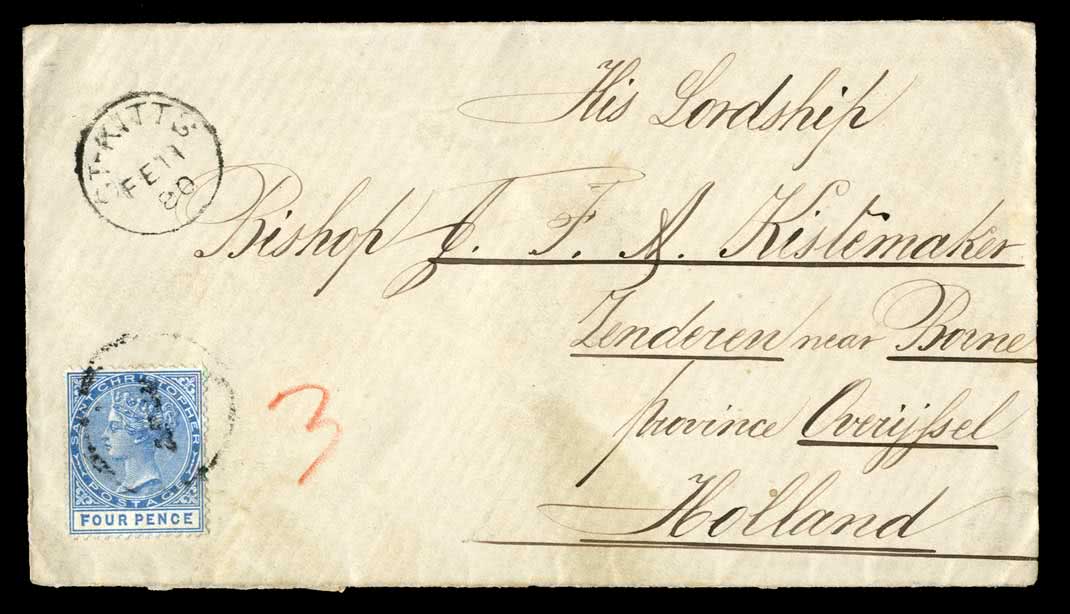 His Lordship
ST-KITTS
FE 11
80
Bishop J. F. A. Kistemaker
Zenderen near Borne
province Overijssel
Holland
3
SAINT CHRISTOPHER
POSTAGE
FOUR PENCE